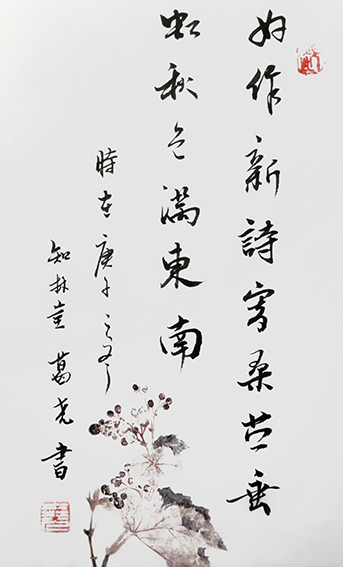 好作新詩寄桑苎垂
虹秋色滿東南
時在庚子之
知林堂葛尧書